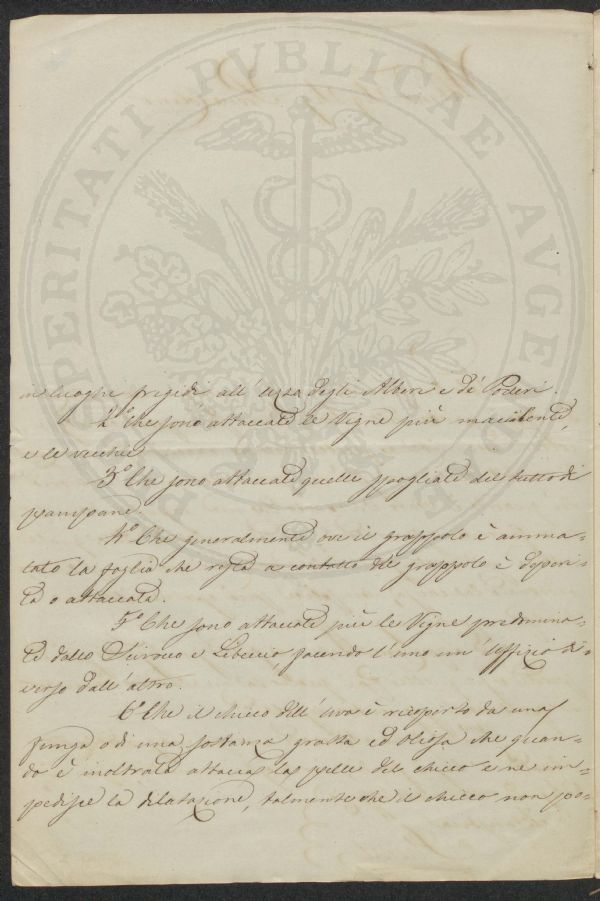 PROSPERITATI PUBLICAE AUGENDAE
in luoghi frigidi all'uzza degli Alberi e de' Poderi.
2.° Che sono attaccate le Vigne più macilente,
e le vecchie
3.° Che sono attaccate quelle spogliate del tutto di
pampane.
4.° Che generalmente ove il grappolo è amma-
lato la foglia che resta a contatto del grappolo è deperi-
ta o attaccata.
5.° Che sono attaccate più le Vigne predomina-
te dallo Scirocco e Libeccio, facendo l'uno un'Uffizio di-
verso dall'altro.
6.° Che il chicco dell'uva è ricoperto da una
funga o di una sostanza grassa ed oliosa che quan-
do è inoltrata attacca la pelle del chicco e ne im-
pedisce la dilatazione, talmente che il chicco non po-